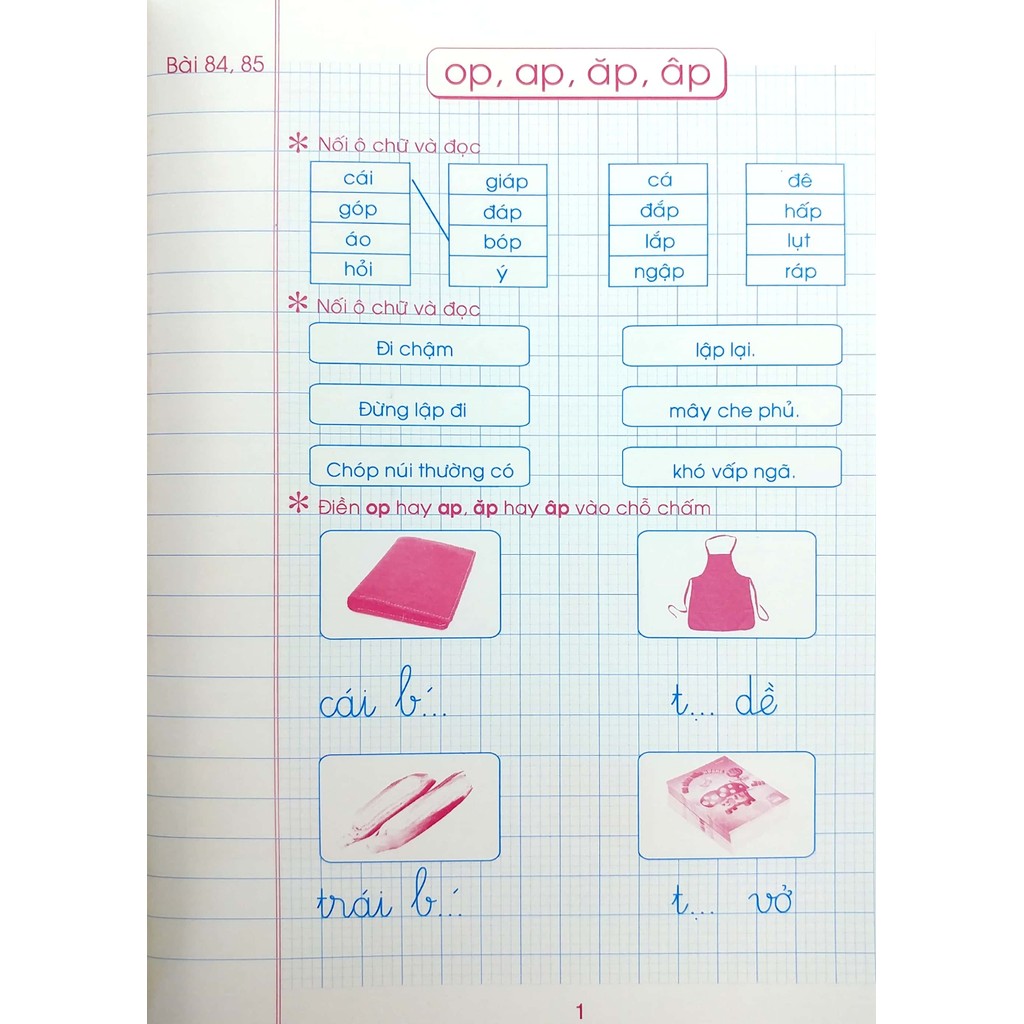 Bài 84, 85
op, ap, ăp, âp
* Nối ô chữ và đọc
cái giáp cá đê
góp đáp đắp hấp
áo bóp lắp lụt
hỏi ý ngập ráp
* Nối ô chữ và đọc
Đi chậm lập lại.
Đừng lập đi mây che phủ.
Chóp núi thường có khó vấp ngã.
* Điền op hay ap, ăp hay âp vào chỗ chấm
cái b ́... t... dề
trái b ́... t... vở
1